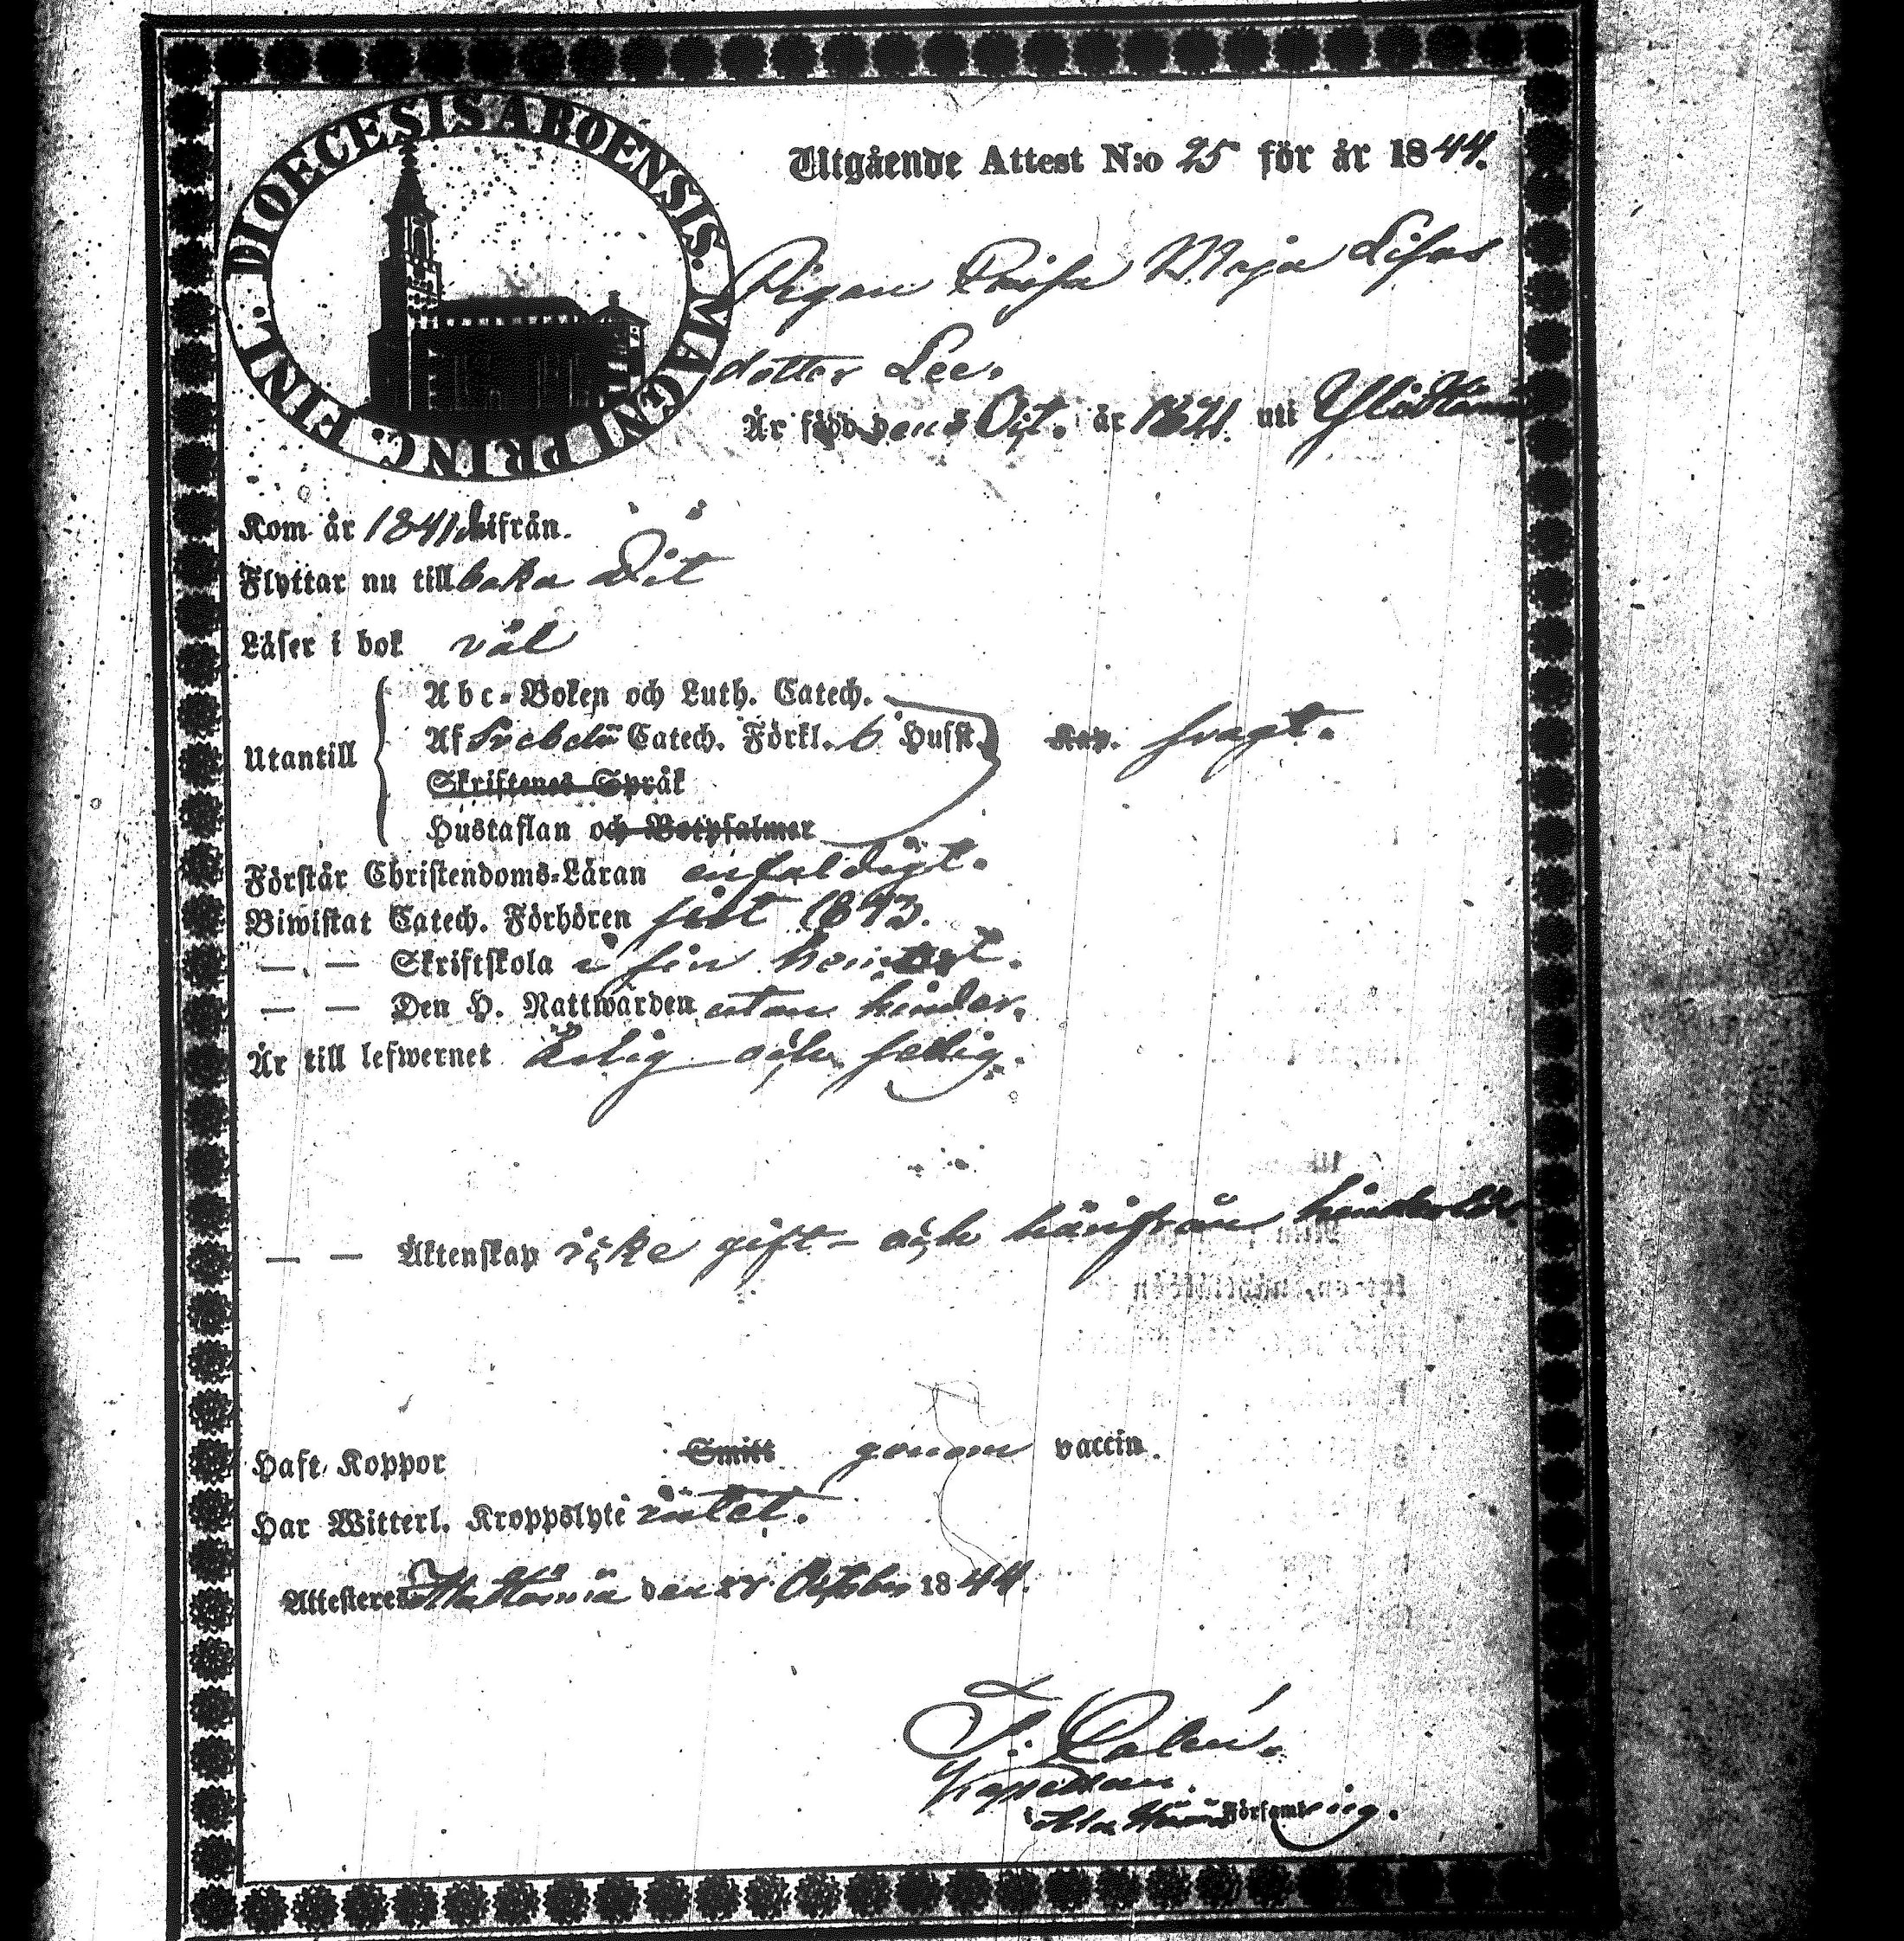 DIOECESIS ABOENSIS. MAGNI PRINC. FINL.
Utgående Attest N:o 25 för år 1844.
Pigan Maja Lisas
dotter Lee.
Är född den 3 Oct. år 1821. uti
Kom år 1841 hitifrån.
Flyttar nu tillbaka Dit
Läser i bok väl
Utantill
Abc-Boken och Luth. Catech.
Af Svebelii Catech. Förkl. 6 Hufst. svagt.
Skriftenes Språk
Hustaflan och Botpsalmer
Förstår Christendoms-Läran enfaldigt.
Biwistat Catech. Förhören sist 1843.
— — Skriftskola i sin hemort.
— — Den H. Nattwarden utan hinder.
Är till lefwernet Ärlig och sedig.
— — Äktenskap icke gift – och härifrån hinderlös.
Haft Koppor Smitt genom vaccin.
Har Witterl. Kroppslyte intet.
Attesteres den October 1844.
Kapellan.
i Församling.